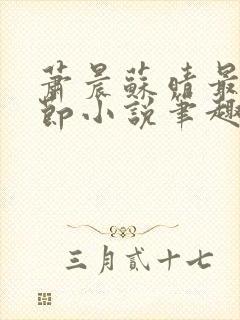 蕭晨蘇晴最
節小說筆趣
三月貳十七